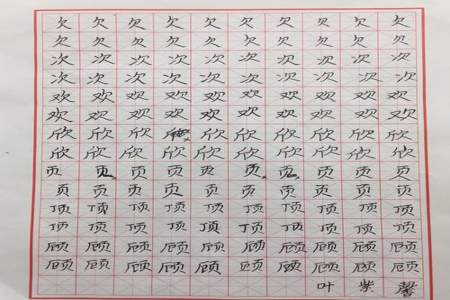 欠欠欠欠欠欠欠欠欠欠
欠欠欠欠欠欠欠欠欠欠
次次次次次次次次次次
次次次次次次次次次次
欢欢欢欢欢欢欢欢欢欢
欢欢欢欢欢欢欢欢欢欢
欣欣欣欣欣欣欣欣欣欣
欣欣欣欣欣欣欣欣欣欣
页页页页页页页页页页
页页页页页页页页页页
顶顶顶顶顶顶顶顶顶顶
顶顶顶顶顶顶顶顶顶顶
顾顾顾顾顾顾顾顾顾顾
顾顾顾顾顾顾顾顾顾顾
叶紫馨